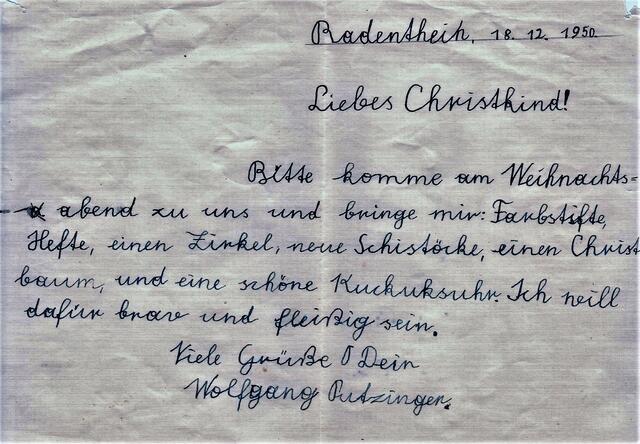 Radentheih, 18. 12. 1950.
Liebes Christkind!
Bitte komme am Weihnachts=
abend zu uns und bringe mir: Farbstifte,
Hefte, einen Zirkel, neue Schistöcke, einen Christ
baum, und eine schöne Kuckuksuhr. Ich will
dafür brav und fleißig sein.
Viele Grüße Dein
Wolfgang Putzinger.